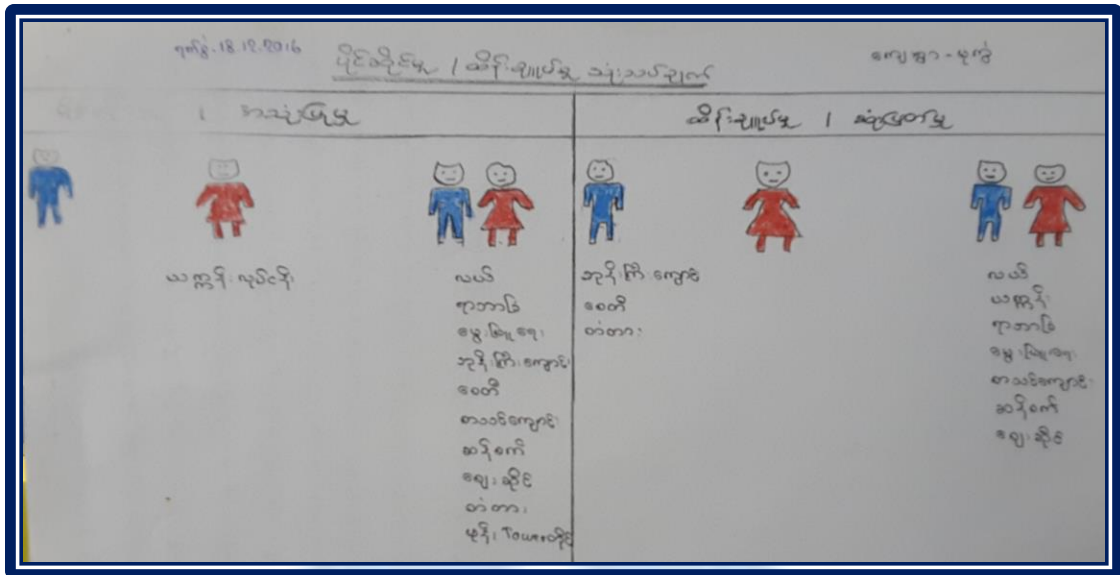 ရက်စွဲ-18.12.2016
ပိုင်ဆိုင်မှု / ထိန်းချုပ်မှု သုံးသပ်ချက်
ကျေးရွာ-မူကွဲ
/ အသုံးပြုမှု
ထိန်းချုပ်မှု / ဆုံးဖြတ်မှု
ယက္ကန်းလုပ်ငန်း
လယ်
ရာဘာခြံ
မွေးမြူရေး
ဘုန်းကြီးကျောင်း
စေတီ
စာသင်ကျောင်း
ဆန်စက်
ဈေးဆိုင်
တံတား
ဖုန်း Towerတိုင်
ဘုန်းကြီးကျောင်း
စေတီ
တံတား
လယ်
ယက္ကန်း
ရာဘာခြံ
မွေးမြူရေး
စာသင်ကျောင်း
ဆန်စက်
ဈေးဆိုင်